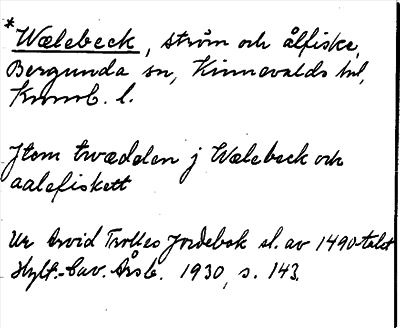 *Wælebeck, ström och ålfiske,
Bergunda sn, Kinnevalds hd,
Kronob. l.
Jtem twædelen j Wælebeck och
aalefiskett
Ur Arvid Trolles Jordebok sl. av 1490-talet
Hylt.-Cav. Årsb. 1930, s. 143.